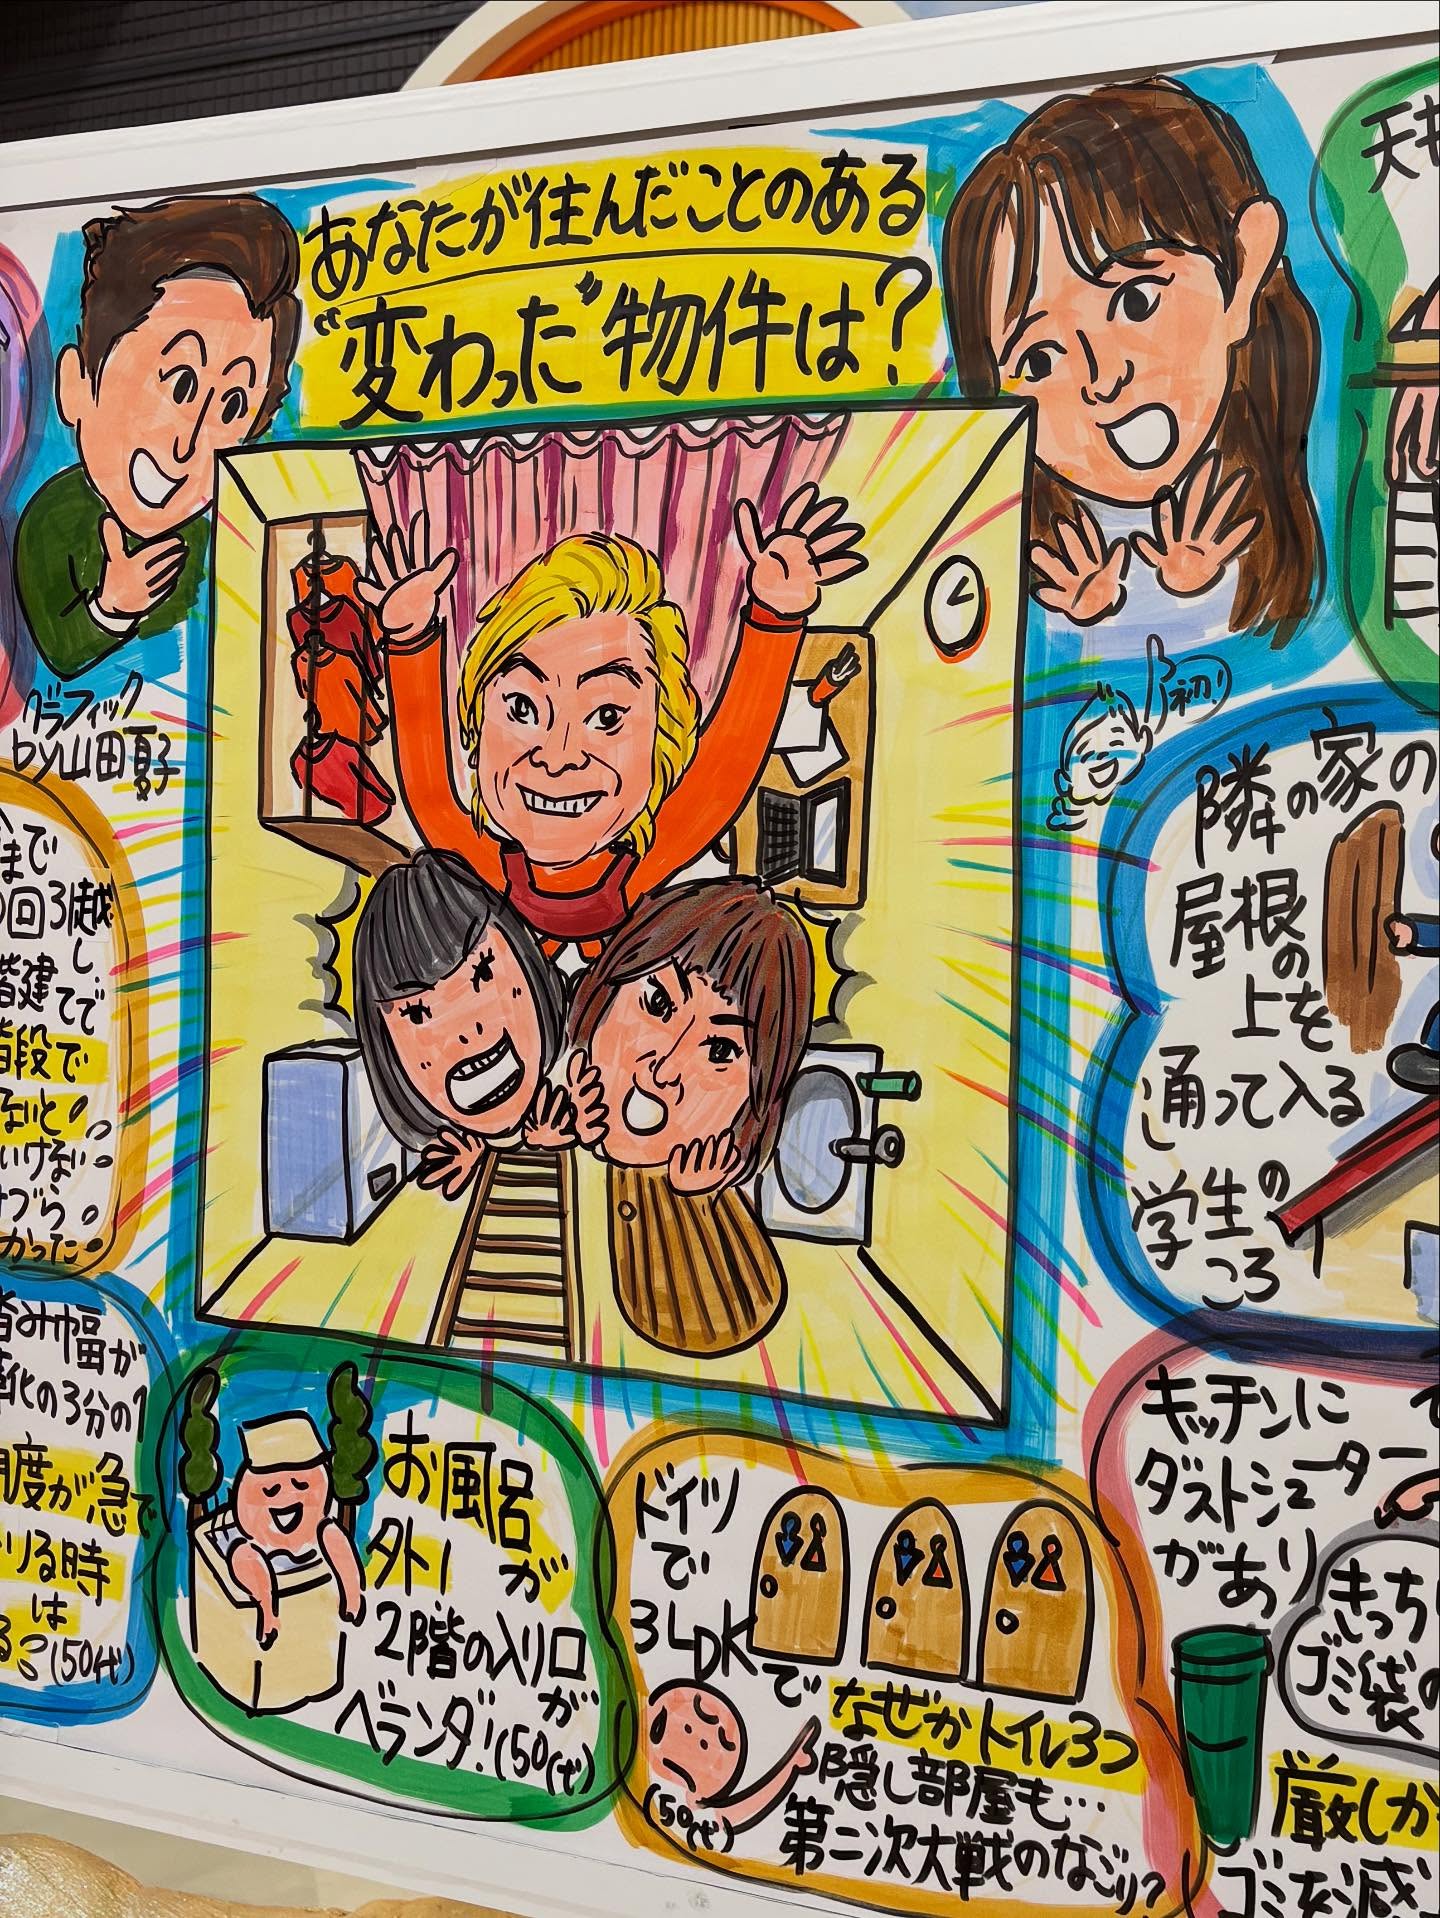 あなたが住んだことのある
"変わった"物件は?
グラフィック
by山田夏子
初!
まで
回引越し
階建てで
階段で
ないと
いけない
づら
かった
踏み幅が
靴の3分の1
角度が急で
りる時
は
(50代)
お風呂が
外!
2階の入り口が
ベランダ!(50代)
ドイツ
で
3LDK
で
なぜかトイレ3つ
隠し部屋も…
第二次大戦のなごり?
(50代)
隣の家の
屋根の
上を
通って入る
学生の
ころ
キッチンに
ダストシューター
があり
きっち
ゴミ袋の
厳しか
ゴミを減
天